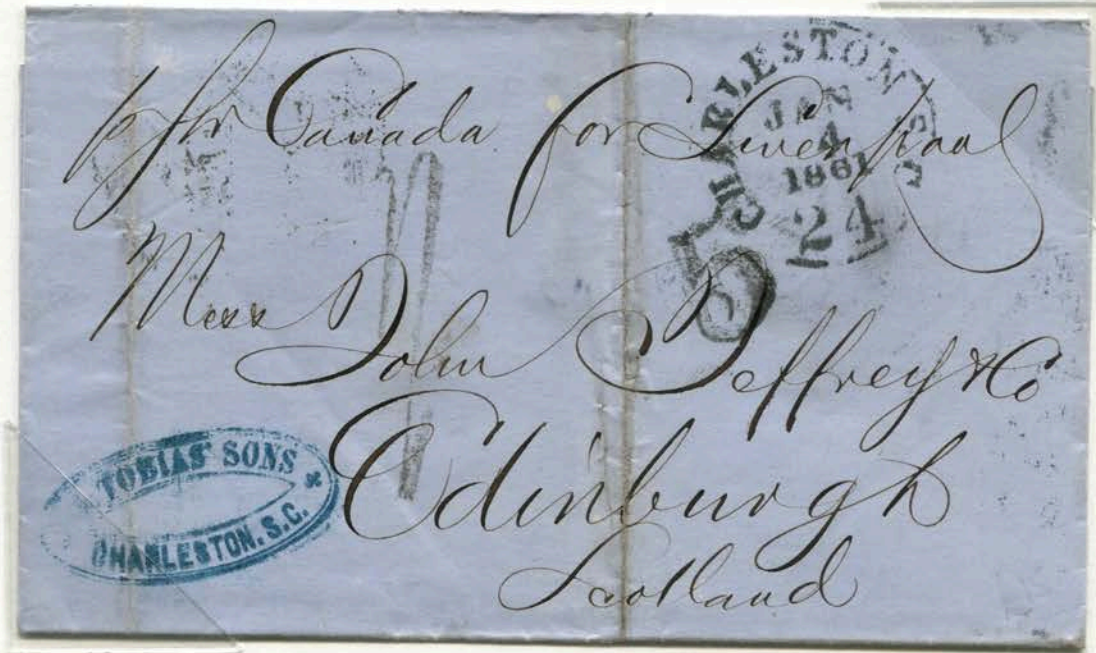 p str Canada for Liverpool
CHARLESTON S.C.
JAN
4
1861
24
5
Mess John Jeffrey & Co
Edinburgh
Scotland
TOBIAS' SONS
CHARLESTON, S.C.